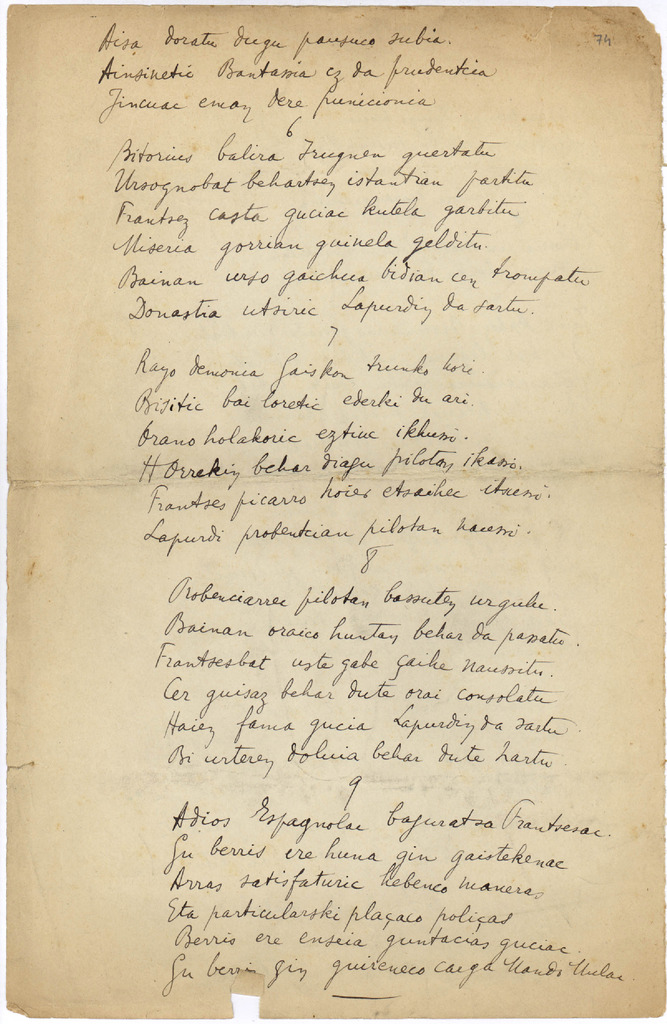 74
Aisa doratu dugu pausuco subia.
Ainsinetic Bantassia ez da prudentcia
Jincuac eman dere punicionia
6
Bitorius balira Irugnen guertatu
Ursognobat behartsen istantian partitu
Frantsez casta guciac kutela garbitu
Miseria gorrian guinela gelditu.
Bainan urso gaichua bidian cen trompatu
Donastia utsiric Lapurdin da sartu.
7
Rayo demonia Gaiskon trunko hori.
Bisitic bai loretic ederki du ari.
Orano holakoric eztiuc ikhussi.
Horrekin behar diagu pilotan ikassi.
Frantses picarro hoier etsaihec itsessi.
Lapurdi probentcian pilotan naussi.
8
Probenciarrec pilotan bassuten urguilu.
Bainan oraico huntan behar da passatu.
Frantsesbat uste gabe çaihe naussitu.
Cer guisaz behar dute orai consolatu
Haien fama gucia Lapurdin da sartu.
Bi urteren doluia behar dute hartu.
9
Adios Espagnolac baguratsa Frantsesac.
Gu berris ere huna gin gaistekenac
Arras satisfaturic hebenco maneras
Eta particularski plaçaco poliças
Berris ere enseia guntacias guciac.
Gu berris gin guireneco carga Handi Mulac.